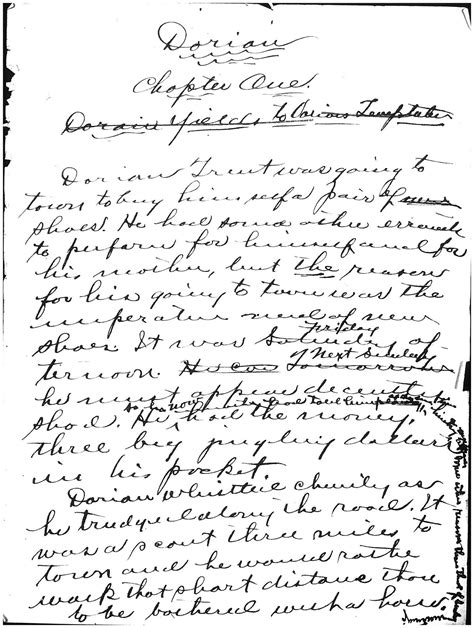 Dorian
Chapter One.
Dorain Yields to Various Temptations
Dorian Trent was going to
town to buy himself a pair of new
shoes. He had some other errands
to perform for himself and for
his mother, but the reason
for his going to town was the
imperative need of new
shoes. It was Saturday af-
Friday
ternoon. tomorrow
Next Sunday
he must appear decently
shod. He had the money,
three big jingling dollars
in his pocket.
Dorian whistled cheerily as
he trudged along the road. It
was a scant three miles to
town and he would rather
walk that short distance than
to be bothered with a horse.